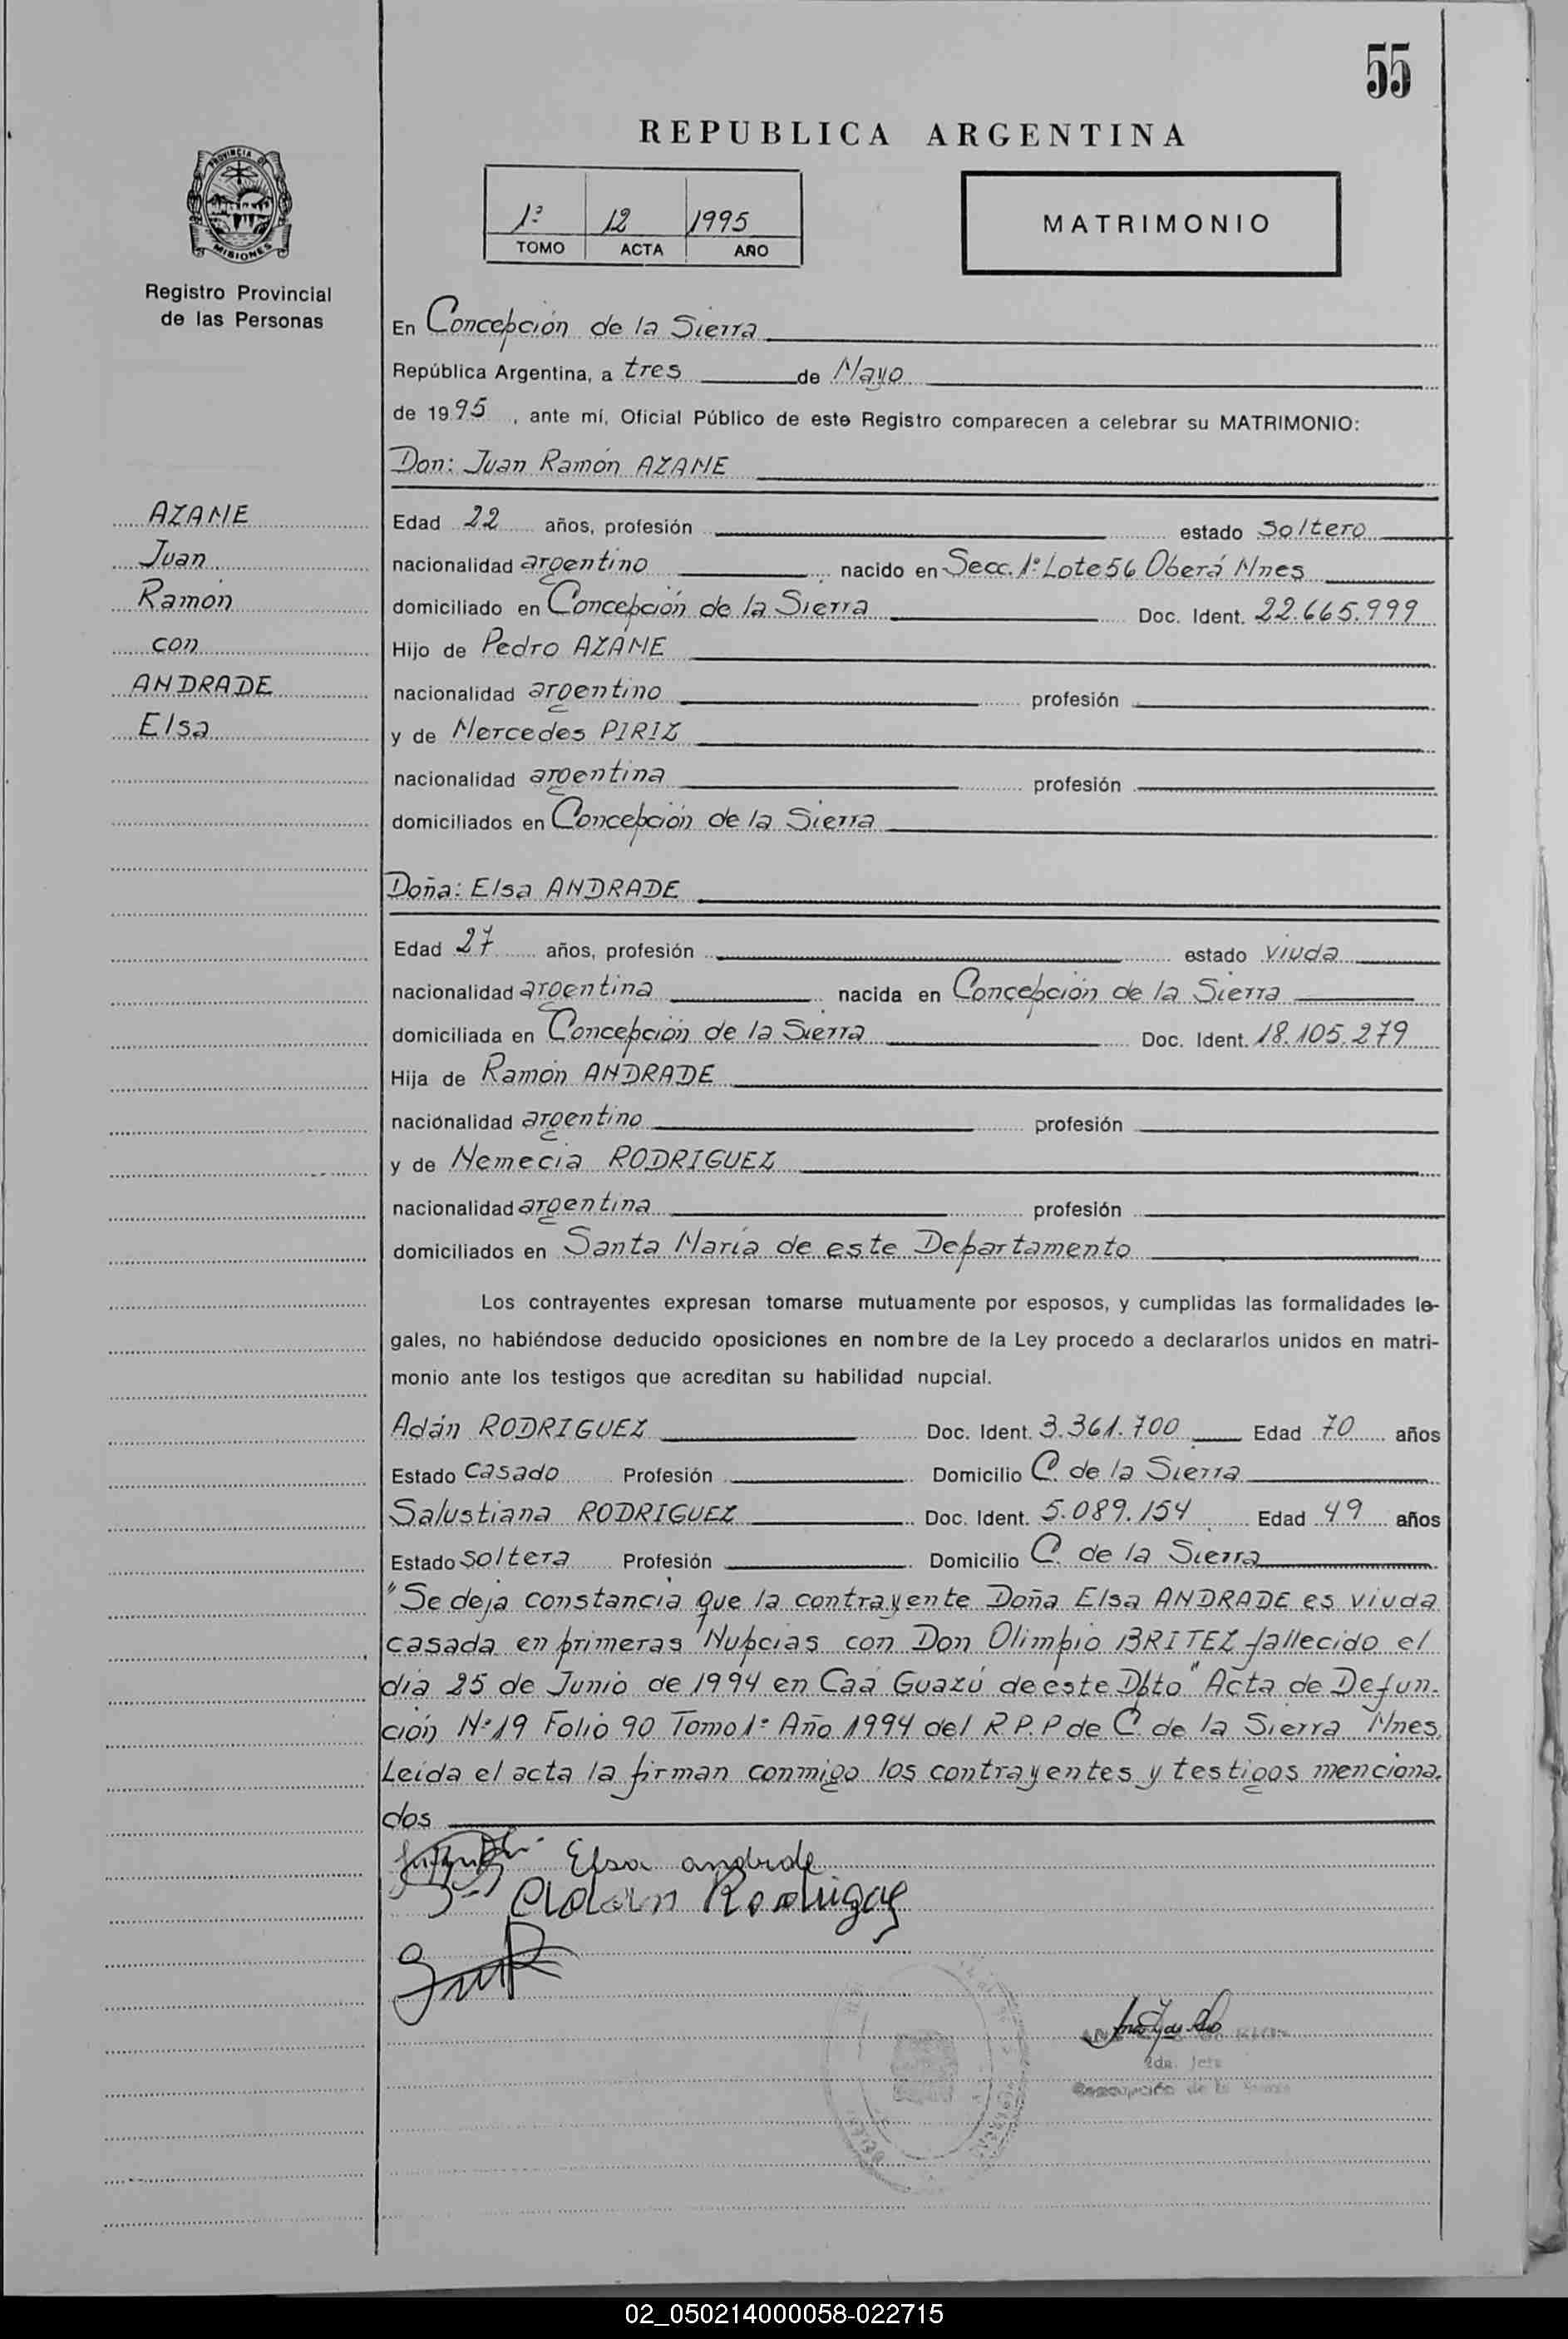 55
REPUBLICA ARGENTINA
PROVINCIA DE
MISIONES
Registro Provincial
de las Personas
1º 12 1995
TOMO ACTA AÑO
MATRIMONIO
En Concepción de la Sierra
República Argentina, a tres de Mayo
de 1995, ante mí, Oficial Público de este Registro comparecen a celebrar su MATRIMONIO:
Don: Juan Ramón AZAME
AZAME
Juan
Ramón
con
ANDRADE
Elsa
Edad 22 años, profesión estado soltero
nacionalidad argentino nacido en Secc. 1º Lote 56 Oberá Mnes
domiciliado en Concepción de la Sierra Doc. Ident. 22.665.999
Hijo de Pedro AZAME
nacionalidad argentino profesión
y de Mercedes PIRIZ
nacionalidad argentina profesión
domiciliados en Concepción de la Sierra
Doña: Elsa ANDRADE
Edad 27 años, profesión estado viuda
nacionalidad argentina nacida en Concepción de la Sierra
domiciliada en Concepción de la Sierra Doc. Ident. 18.105.279
Hija de Ramón ANDRADE
nacionalidad argentino profesión
y de Nemecia RODRIGUEZ
nacionalidad argentina profesión
domiciliados en Santa María de este Departamento
Los contrayentes expresan tomarse mutuamente por esposos, y cumplidas las formalidades le-
gales, no habiéndose deducido oposiciones en nombre de la Ley procedo a declararlos unidos en matri-
monio ante los testigos que acreditan su habilidad nupcial.
Adán RODRIGUEZ Doc. Ident. 3.361.700 Edad 70 años
Estado casado Profesión Domicilio C. de la Sierra
Salustiana RODRIGUEZ Doc. Ident. 5.089.154 Edad 49 años
Estado soltera Profesión Domicilio C. de la Sierra
"Se deja constancia que la contrayente Doña Elsa ANDRADE es viuda
casada en primeras Nupcias con Don Olimpio BRITEZ fallecido el
día 25 de Junio de 1994 en Caá Guazú de este Dpto" Acta de Defun-
ción Nº 19 Folio 90 Tomo 1º Año 1994 del R.P.P de C. de la Sierra Mnes.
Leida el acta la firman conmigo los contrayentes y testigos menciona-
dos
Elsa andrade
Adán Rodriguez
2da. Jefe
Concepción de la Sierra
02_050214000058-022715